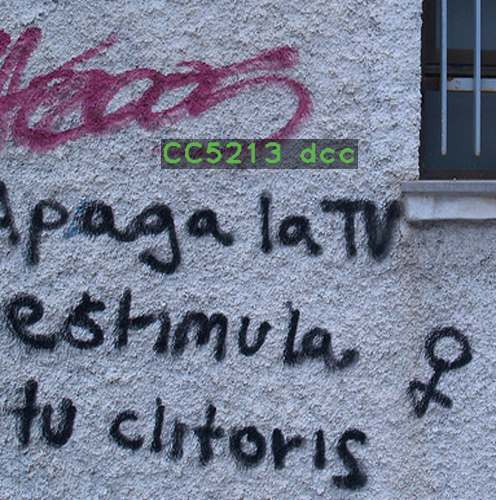 CC5213 dcc
Apaga la TV
estimula
tu clitoris